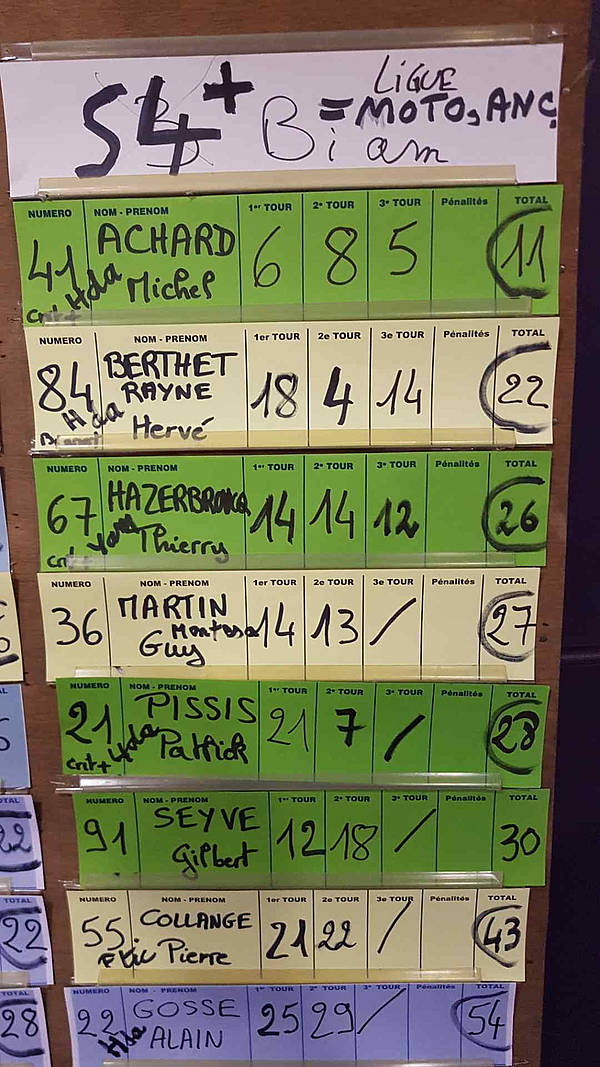 54+ = LIGUE
MOTO, ANC.
Biam
NUMERO NOM - PRENOM 1er TOUR 2e TOUR 3e TOUR Pénalités TOTAL
41 ACHARD 6 8 5 11
Hda Michel
NUMERO NOM - PRENOM 1er TOUR 2e TOUR 3e TOUR Pénalités TOTAL
84 BERTHET 18 4 14 22
RAYNE
Hda Hervé
NUMERO NOM - PRENOM 1er TOUR 2e TOUR 3e TOUR Pénalités TOTAL
67 HAZERBROUCQ 14 14 12 26
Crit+ Yam Thierry
NUMERO NOM - PRENOM 1er TOUR 2e TOUR 3e TOUR Pénalités TOTAL
36 MARTIN 14 13 / 27
Montesa
Guy
NUMERO NOM - PRENOM 1er TOUR 2e TOUR 3e TOUR Pénalités TOTAL
21 PISSIS 21 7 / 28
Crit+ Hda Patrick
NUMERO NOM - PRENOM 1er TOUR 2e TOUR 3e TOUR Pénalités TOTAL
91 SEYVE 12 18 / 30
Gilbert
NUMERO NOM - PRENOM 1er TOUR 2e TOUR 3e TOUR Pénalités TOTAL
55 COLLANGE 21 22 / 43
Pierre
NUMERO NOM - PRENOM 1er TOUR 2e TOUR 3e TOUR Pénalités TOTAL
22 GOSSE 25 29 / 54
Hda ALAIN
TOTAL
22
TOTAL
22
TOTAL
28